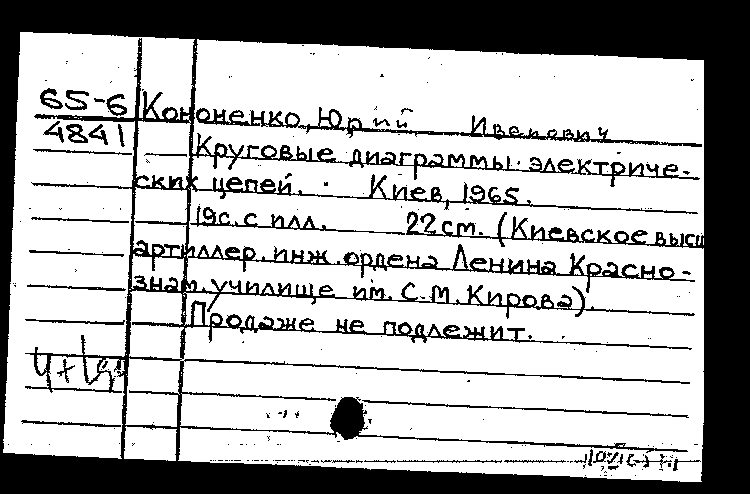 65-6 Кононенко, Юрий Иванович
4841
Круговые диаграммы электриче-
ских цепей. Киев, 1965.
19с. с илл. 22 cm. (Киевское высш
артиллер. инж. ордена Ленина Красно-
знам. училище им. С.М. Кирова).
Продаже не подлежит.